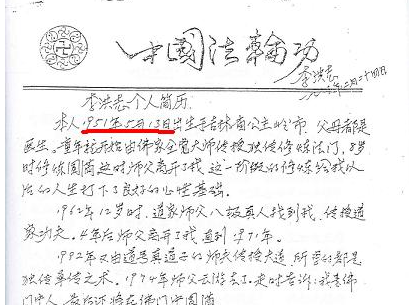 中國法輪功
李洪志
李洪志个人简历
本人1951年5月13日出生于吉林省公主岭市 父母都是
医生。童年我开始由佛家全觉大师传授独传修炼法门，8岁
时修炼圆满这时师父离开了我 这一阶段的修炼给我以
后的人生打下了良好的心性基础。
1962年12岁时，道家师父八极真人找到我，传授道
家功夫。4年后师父离开了我 直到1971年。
1972年又由道号真道子的师父传授大道 所学的都是
独传单传之术。1974年师父云游去了，走时告诉：我是佛
门中人 最后还将在佛门中圆满